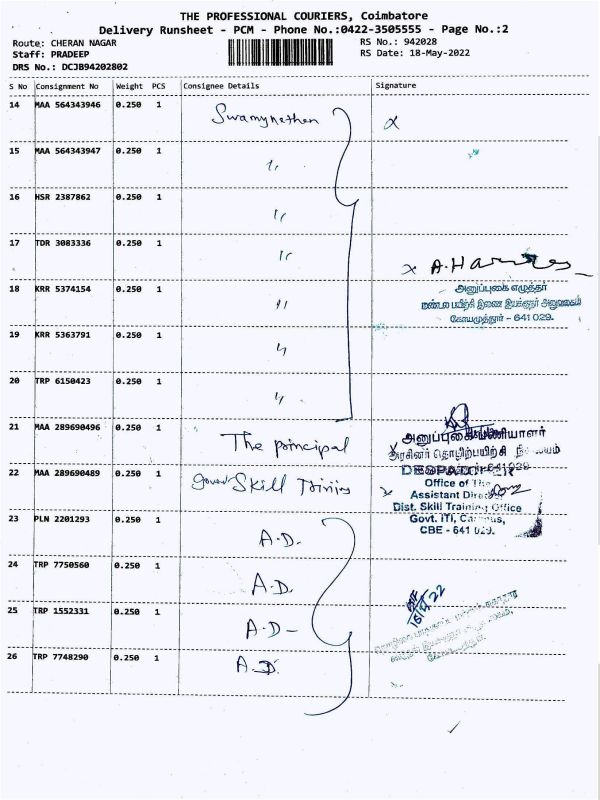 THE PROFESSIONAL COURIERS, Coimbatore
Delivery Runsheet - PCM - Phone No.:0422-3505555 - Page No.:2
Route: CHERAN NAGAR RS No.: 942028
Staff: PRADEEP RS Date: 18-May-2022
DRS No.: DCJB94202802
S No Consignment No Weight PCS Consignee Details Signature
14 MAA 564343946 0.250 1 Swamynathan
15 MAA 564343947 0.250 1 "
16 HSR 2387862 0.250 1 "
17 TDR 3083336 0.250 1 "
A.Har
18 KRR 5374154 0.250 1 "
அனுப்புகை எழுத்தர்
மண்டல பயிற்சி இணை இயக்குநர் அலுவலகம்
கோயமுத்தூர் - 641 029.
19 KRR 5363791 0.250 1 "
20 TRP 6150423 0.250 1 "
21 MAA 289690496 0.250 1 The principal
அனுப்புகை பணியாளர்
அரசினர் தொழிற்பயிற்சி
22 MAA 289690489 0.250 1 Skill
Office of The
Assistant Director
Dist. Skill Training Office
Govt. ITI, Campus,
CBE - 641 029.
23 PLN 2201293 0.250 1 A.D.
24 TRP 7750560 0.250 1 A.D.
25 TRP 1552331 0.250 1 A.D-
26 TRP 7748290 0.250 1 A.D.